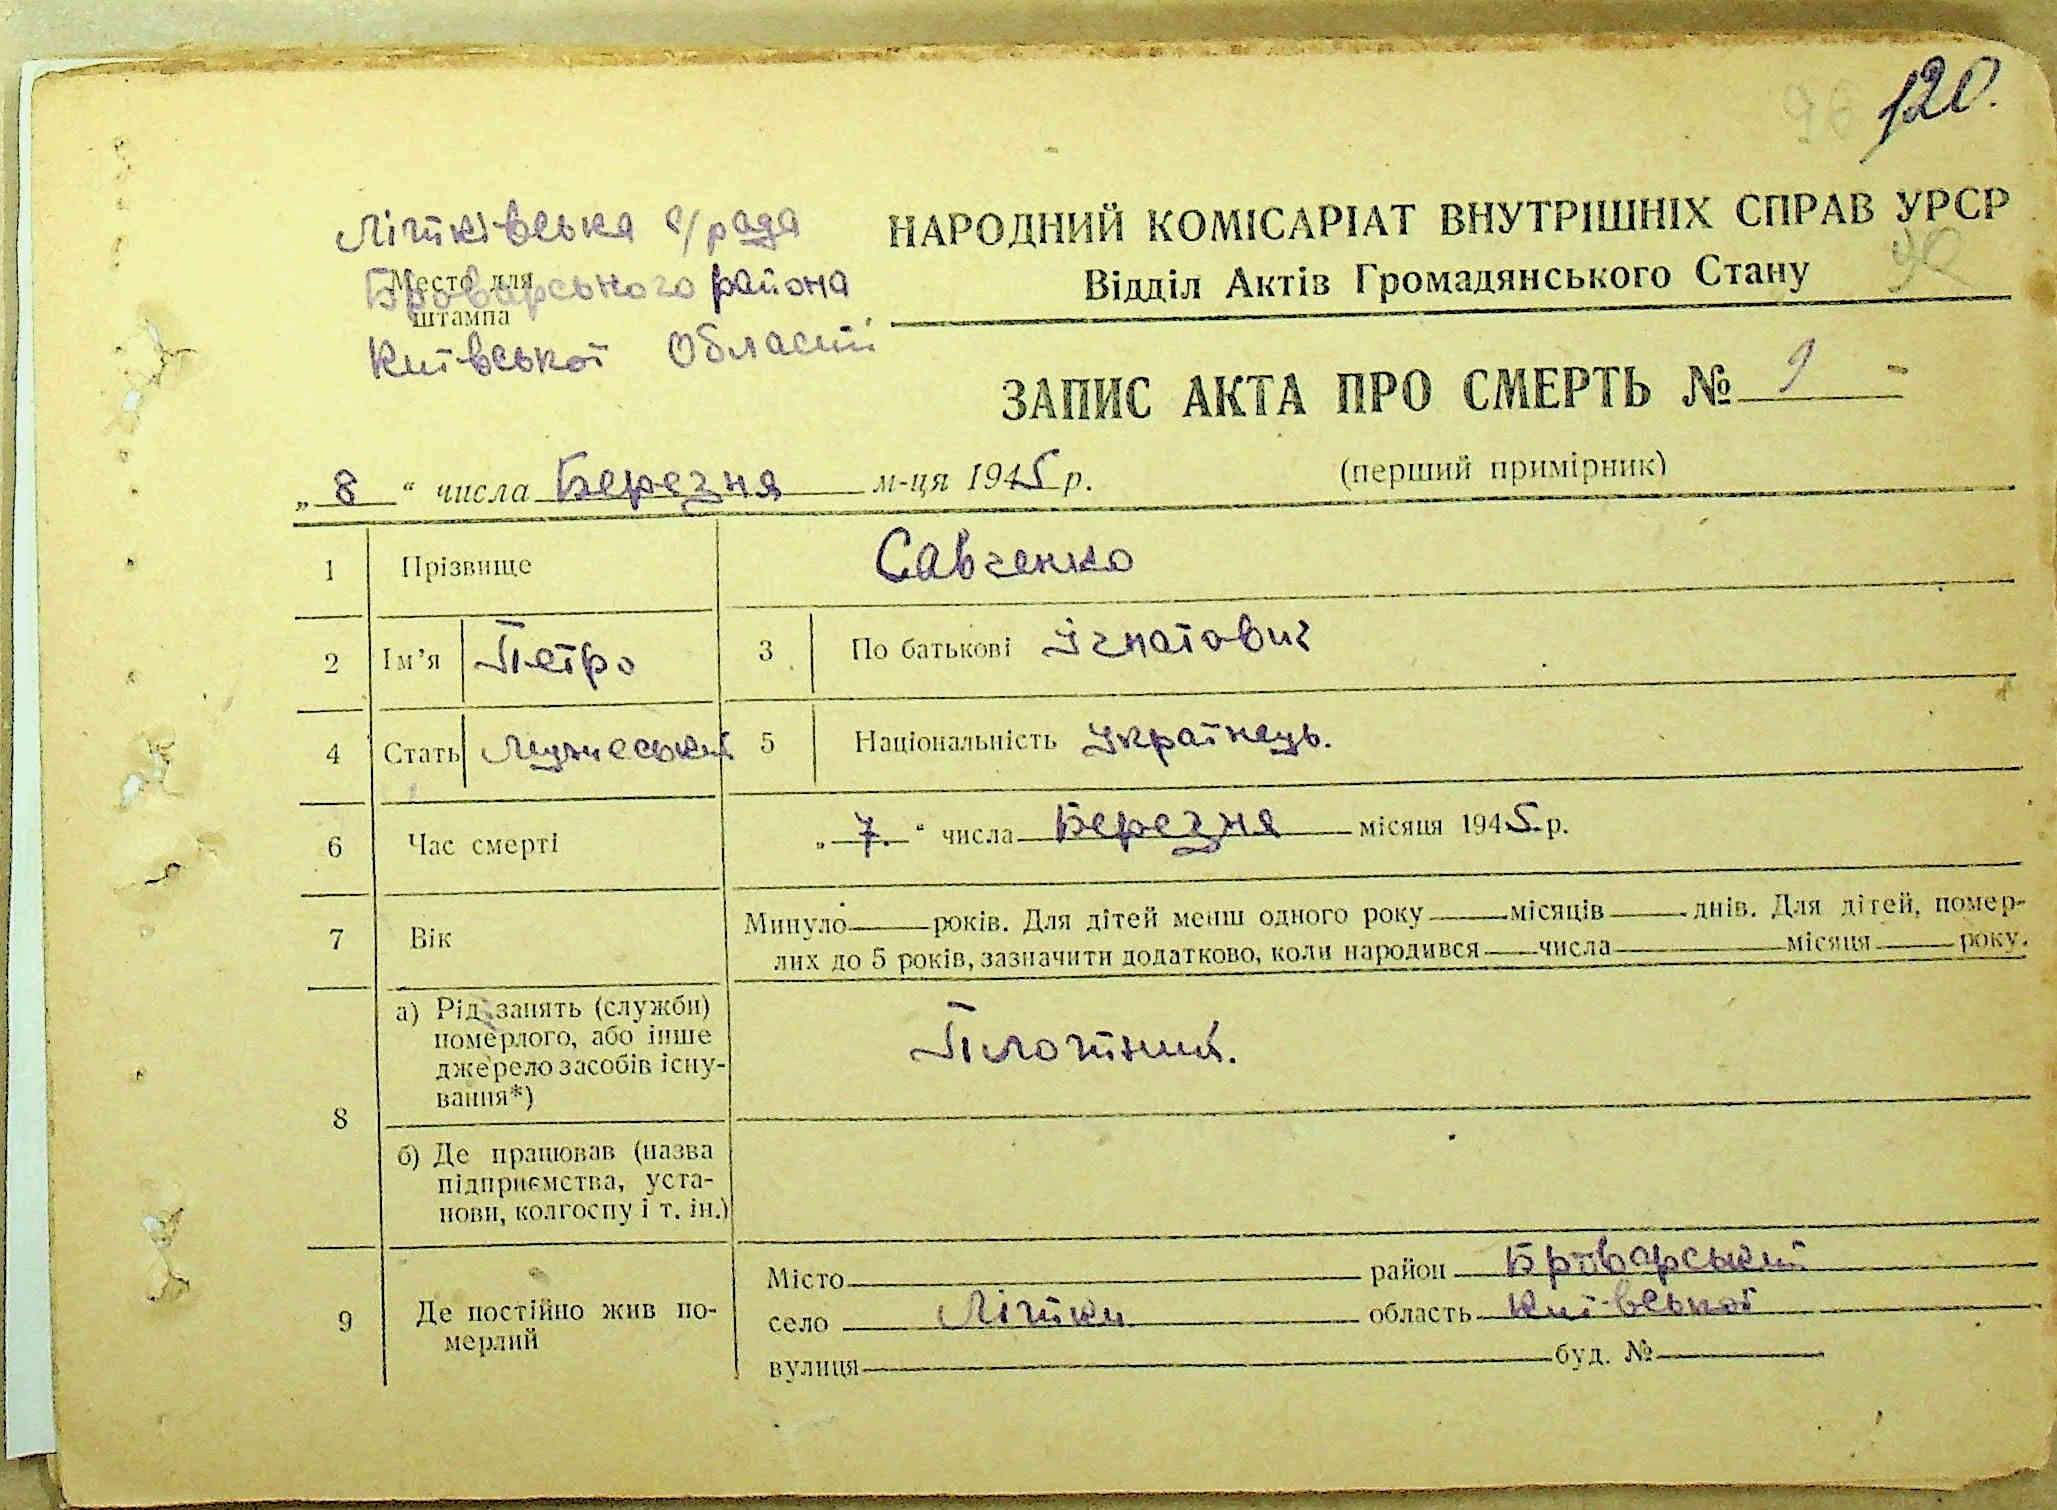 120.
96
Літківська с/рада
Броварського района
Київської Області
Место для
штампа
НАРОДНИЙ КОМІСАРІАТ ВНУТРІШНІХ СПРАВ УРСР
Відділ Актів Громадянського Стану
ЗАПИС АКТА ПРО СМЕРТЬ № 9
(перший примірник)
„ 8 “ числа Березня м-ця 1945 р.
1 Прізвище Савченко
2 Ім’я Петро 3 По батькові Ігнатович
4 Стать Мужеський 5 Національність Українець.
6 Час смерті „ 7. “ числа Березня місяця 1945 р.
7 Вік Минуло років. Для дітей менш одного року місяців днів. Для дітей, помер-
лих до 5 років, зазначити додатково, коли народився числа місяця року.
8 а) Рід занять (служби)
померлого, або інше
джерело засобів існу-
вання*)
Плотний.
б) Де працював (назва
підприємства, уста-
нови, колгоспу і т. ін.)
9 Де постійно жив по-
мерлий
Місто район Броварський
село Літки область Київської
вулиця буд. №